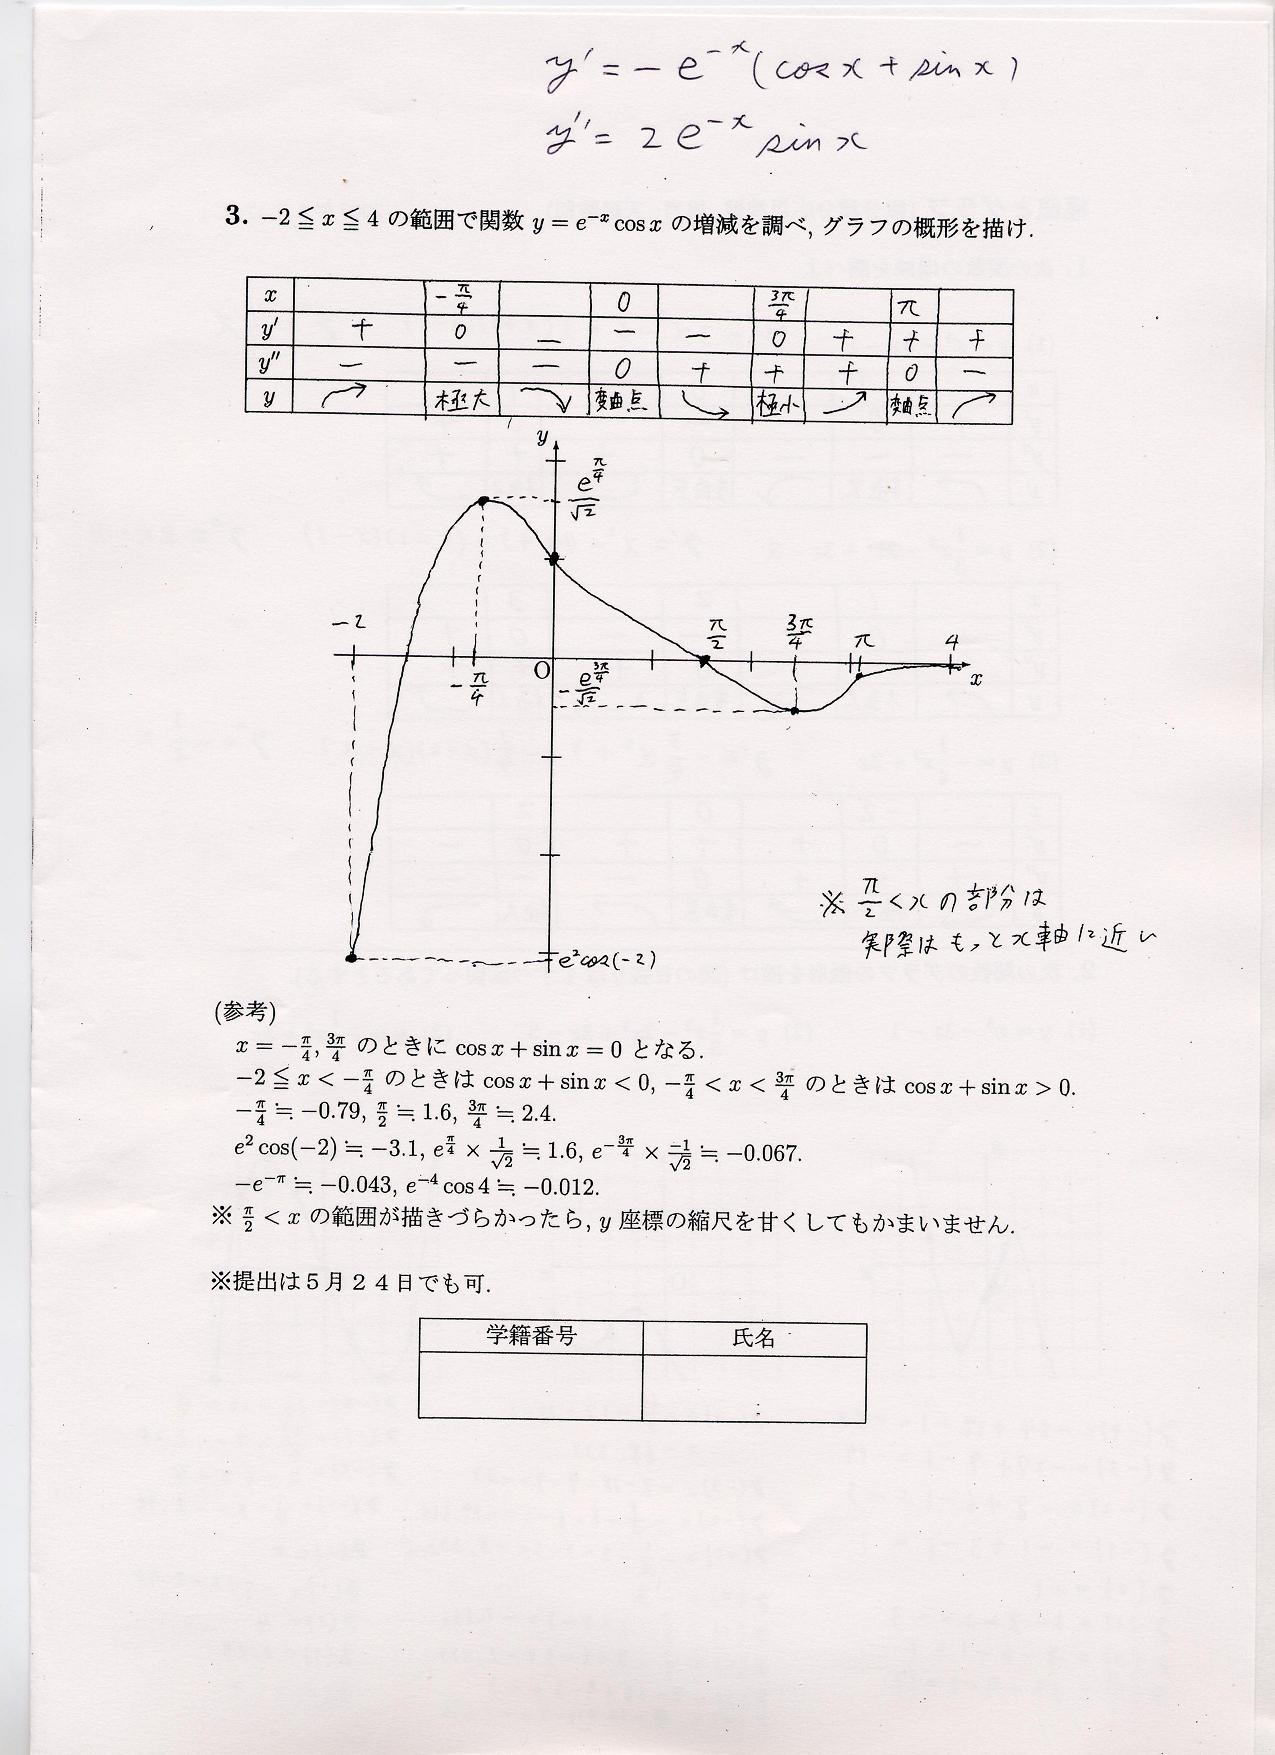 y' = -e^{-x}(cos x + sin x)
y'' = 2e^{-x} sin x
3. −2 ≦ x ≦ 4 の範囲で関数 y = e^{-x} cos x の増減を調べ, グラフの概形を描け.
x -π/4 0 3π/4 π
y' + 0 − − − 0 + + +
y'' − − − 0 + + + 0 −
y 極大 変曲点 極小 変曲点
y
e^{π/4}/√2
-2 π/2 3π/4 π 4
-π/4 O -e^{3π/4}/√2 x
e²cos(-2)
※ π/2 < x の部分は
実際はもっとx軸に近い
(参考)
x = −π/4, 3π/4 のときに cos x + sin x = 0 となる.
−2 ≦ x < −π/4 のときは cos x + sin x < 0, −π/4 < x < 3π/4 のときは cos x + sin x > 0.
−π/4 ≒ −0.79, π/2 ≒ 1.6, 3π/4 ≒ 2.4.
e² cos(−2) ≒ −3.1, e^{π/4} × 1/√2 ≒ 1.6, e^{−3π/4} × −1/√2 ≒ −0.067.
−e^{−π} ≒ −0.043, e^{−4} cos 4 ≒ −0.012.
※ π/2 < x の範囲が描きづらかったら, y 座標の縮尺を甘くしてもかまいません.
※提出は５月２４日でも可.
学籍番号 氏名